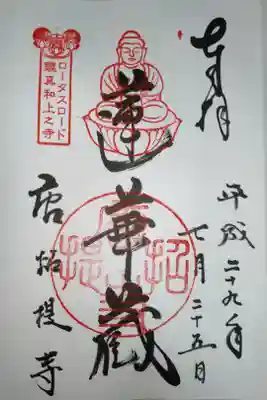 奉拝
平成二十九年
七月二十五日
蓮華蔵
唐招提寺
ロータスロード
鑑真和上之寺
招提